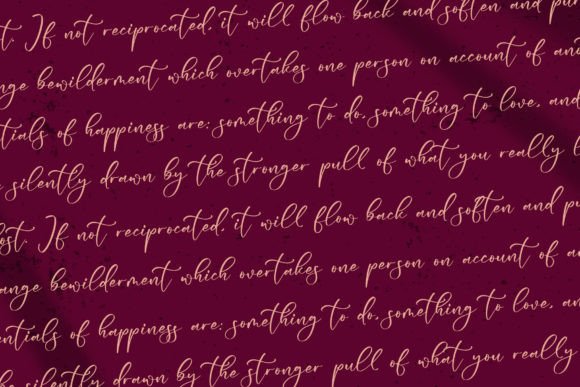 st. If not reciprocated, it will flow back and soften and pu
nge bewilderment which overtakes one person on account of an
ntials of happiness are: something to do, something to love, and
silently drawn by the stronger pull of what you really l
ost. If not reciprocated, it will flow back and soften and pu
ange bewilderment which overtakes one person on account of an
entials of happiness are: something to do, something to love, an
be silently drawn by the stronger pull of what you really